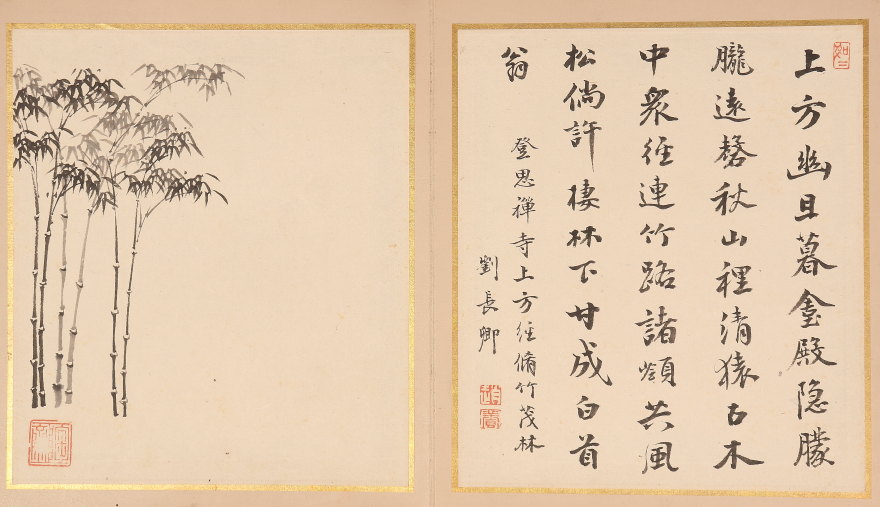 上方幽且暮臺殿隐朦
朧遠磬秋山裡清猿古木
中衆徑連竹路諸嶺共風
松倘許棲林下甘成白首
翁
登思禪寺上方徑脩竹茂林
劉長卿